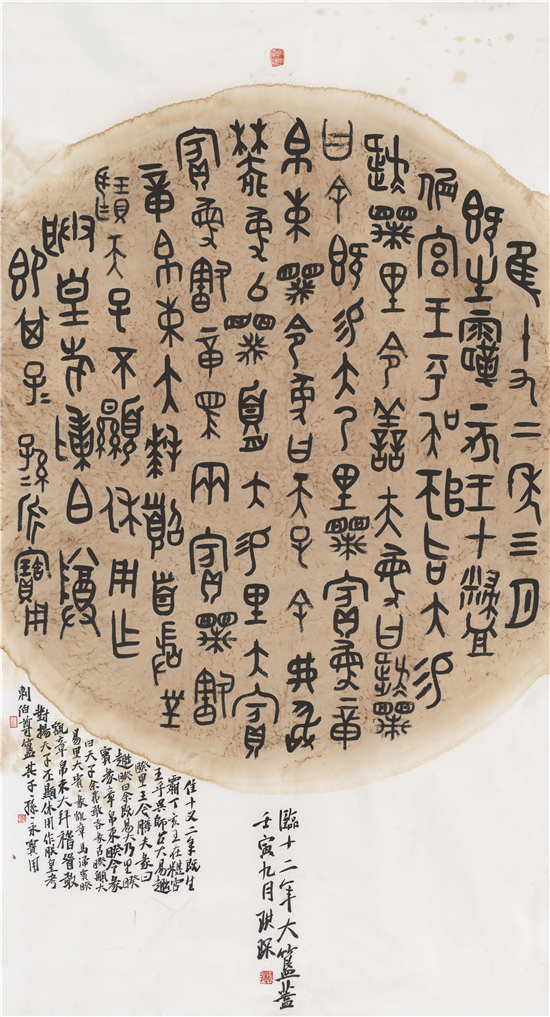 隹十又二年三月
既生霸丁亥王才
侲宫王乎吴師召大易
趞睽里令善夫豕曰趞睽
曰余既易大乃里睽賓豕章
帛束睽令豕曰天子余弗敢
豕以睽履大易里大賓
豕章馬兩賓睽
章帛束大拜稽首敢對
揚天子不顯休用乍
朕皇考剌白尊
其子孫永寶用
隹十又二年既生
霸丁亥王在宫
王乎吴師召大易趞
睽里王令膳夫豕曰
趞睽曰余既易大乃里睽
賓豕章帛束睽令豕
曰天子余弗敢吝豕以睽履大
易里大賓豕章馬兩賓睽
章帛束大拜稽首敢
對揚天子丕顯休用作朕皇考
剌伯尊簋其子孫永寶用
臨十二年大簋蓋
壬寅九月琪琛